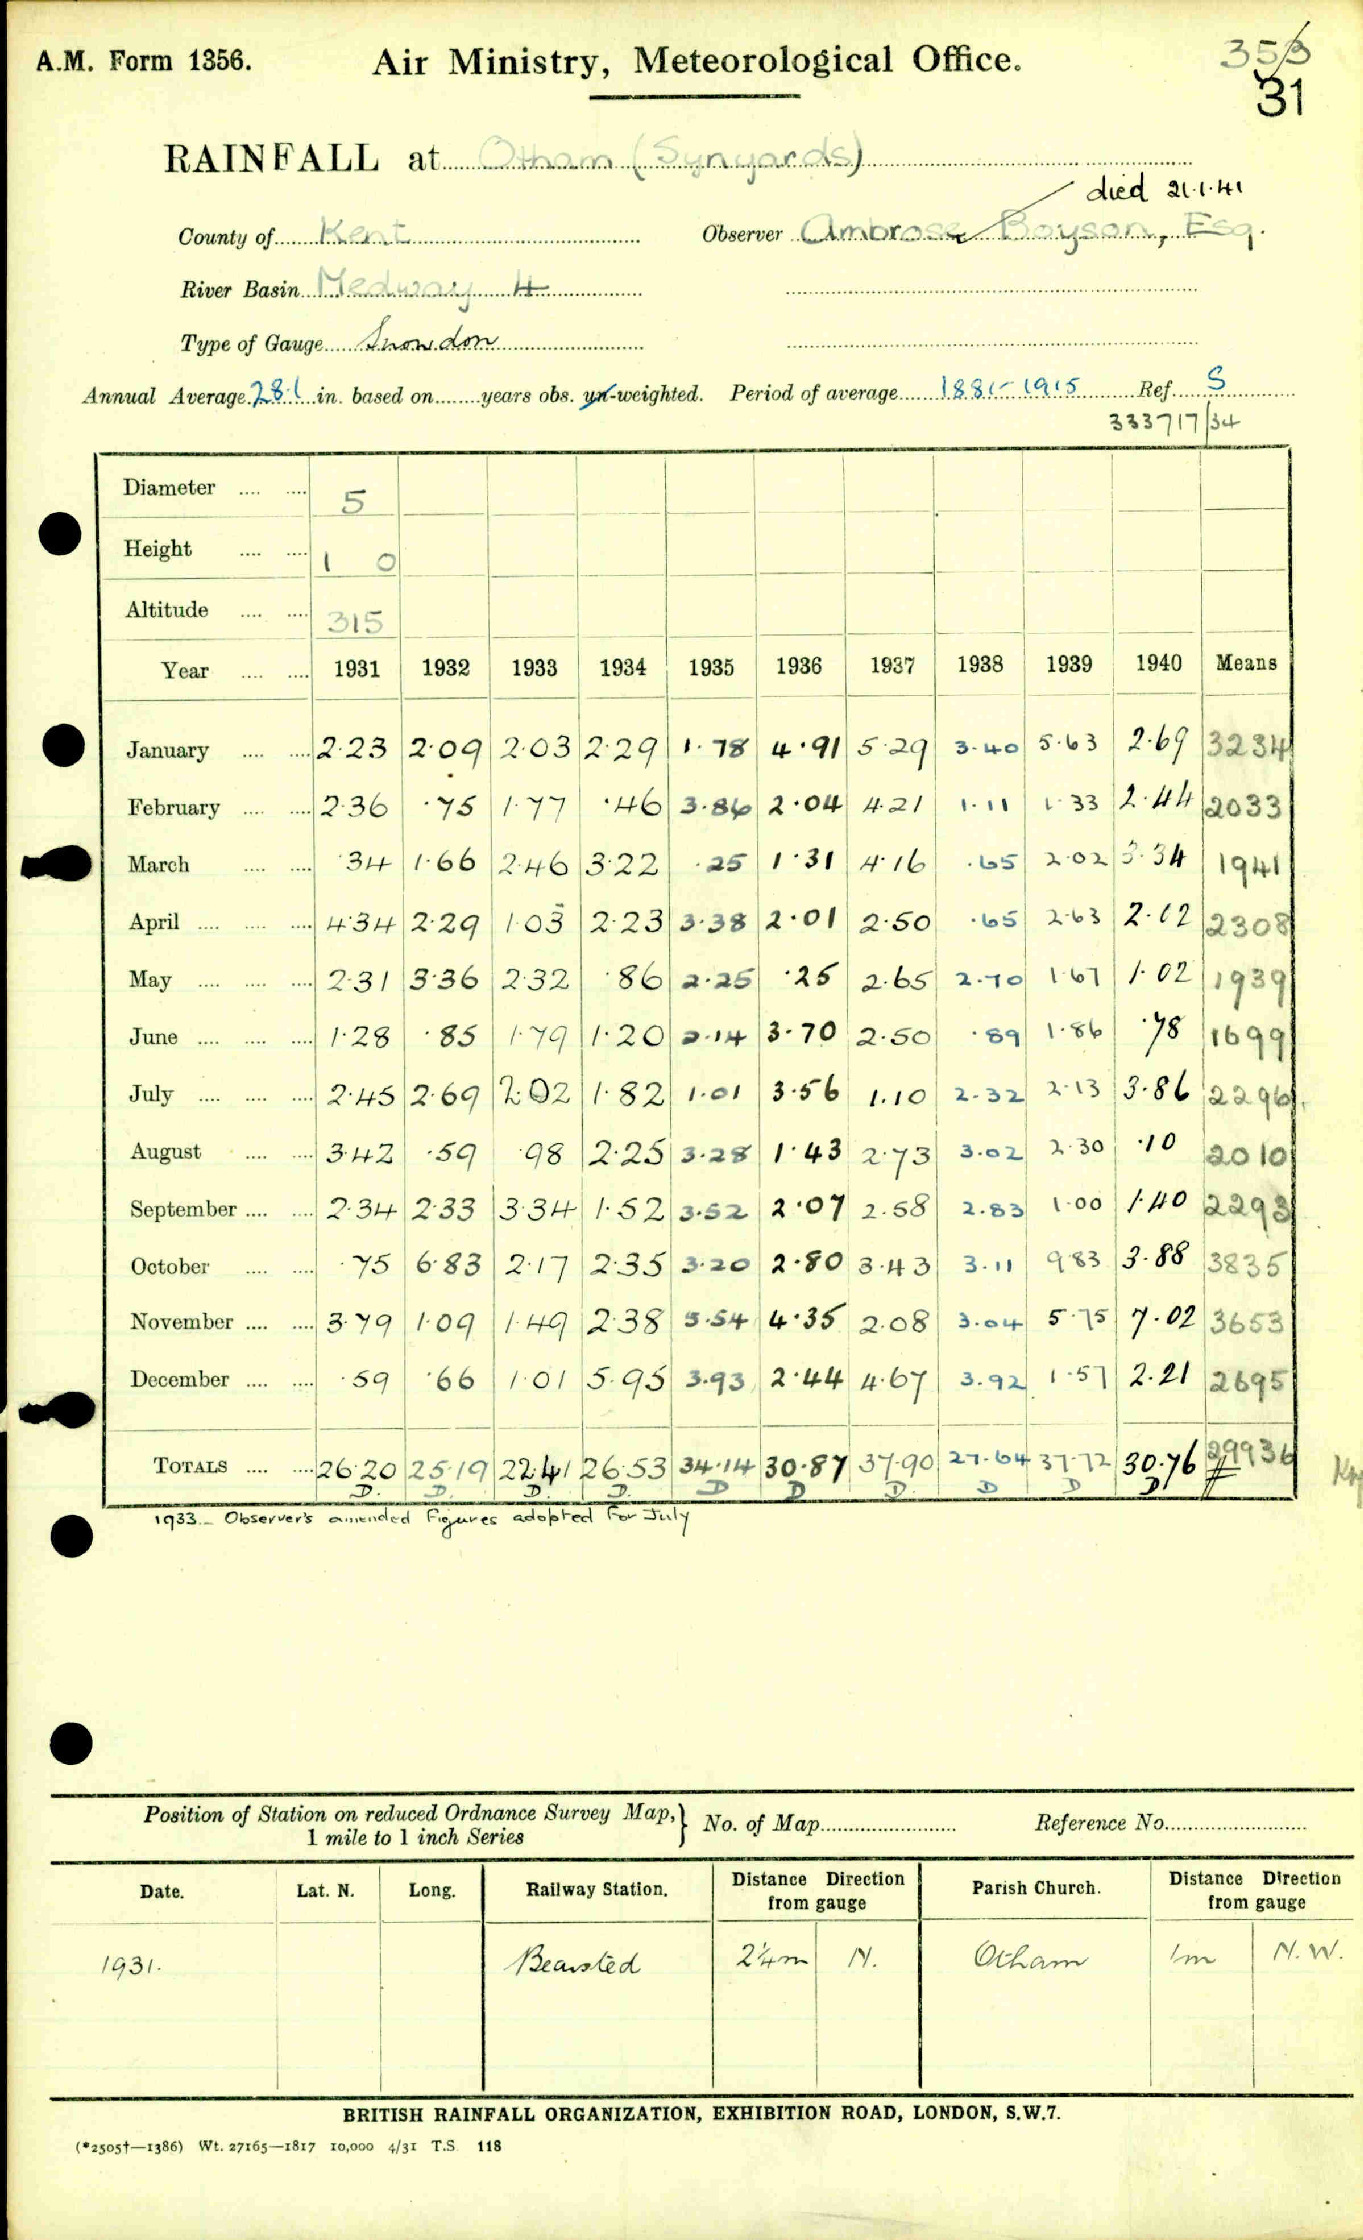 A.M. Form 1356. Air Ministry, Meteorological Office. 353
31
RAINFALL at Otham (Synyards)
died 21·1·41
County of Kent Observer Ambrose Boyson, Esq.
River Basin Medway 4
Type of Gauge Snowdon
Annual Average 28·1 in. based on years obs. un-weighted. Period of average 1881-1915 Ref. S
333717/34
Diameter 5
Height 1 0
Altitude 315
Year 1931 1932 1933 1934 1935 1936 1937 1938 1939 1940 Means
January 2·23 2·09 2·03 2·29 1·78 4·91 5·29 3·40 5·63 2·69 3234
February 2·36 ·75 1·77 ·46 3·86 2·04 4·21 1·11 1·33 2·44 2033
March ·34 1·66 2·46 3·22 ·25 1·31 4·16 ·65 2·02 3·34 1941
April 4·34 2·29 1·03 2·23 3·38 2·01 2·50 ·65 2·63 2·02 2308
May 2·31 3·36 2·32 ·86 2·25 ·25 2·65 2·70 1·67 1·02 1939
June 1·28 ·85 1·79 1·20 2·14 3·70 2·50 ·89 1·86 ·78 1699
July 2·45 2·69 2·02 1·82 1·01 3·56 1·10 2·32 2·13 3·86 2296
August 3·42 ·59 ·98 2·25 3·28 1·43 2·73 3·02 2·30 ·10 2010
September 2·34 2·33 3·34 1·52 3·52 2·07 2·58 2·83 1·00 1·40 2293
October ·75 6·83 2·17 2·35 3·20 2·80 3·43 3·11 9·83 3·88 3835
November 3·79 1·09 1·49 2·38 5·54 4·35 2·08 3·04 5·75 7·02 3653
December ·59 ·66 1·01 5·95 3·93 2·44 4·67 3·92 1·57 2·21 2695
TOTALS 26·20 25·19 22·41 26·53 34·14 30·87 37·90 27·64 37·72 30·76 29936
D. D. D. D. D D D. D D D
1933.- Observer's amended Figures adopted For July
Position of Station on reduced Ordnance Survey Map, } No. of Map Reference No.
1 mile to 1 inch Series
Date. Lat. N. Long. Railway Station. Distance Direction from gauge Parish Church. Distance Direction from gauge
1931. Bearsted 2¼m N. Otham 1m N.W.
BRITISH RAINFALL ORGANIZATION, EXHIBITION ROAD, LONDON, S.W.7.
(*2505†—1386) Wt. 27165—1817 10,000 4/31 T.S. 118